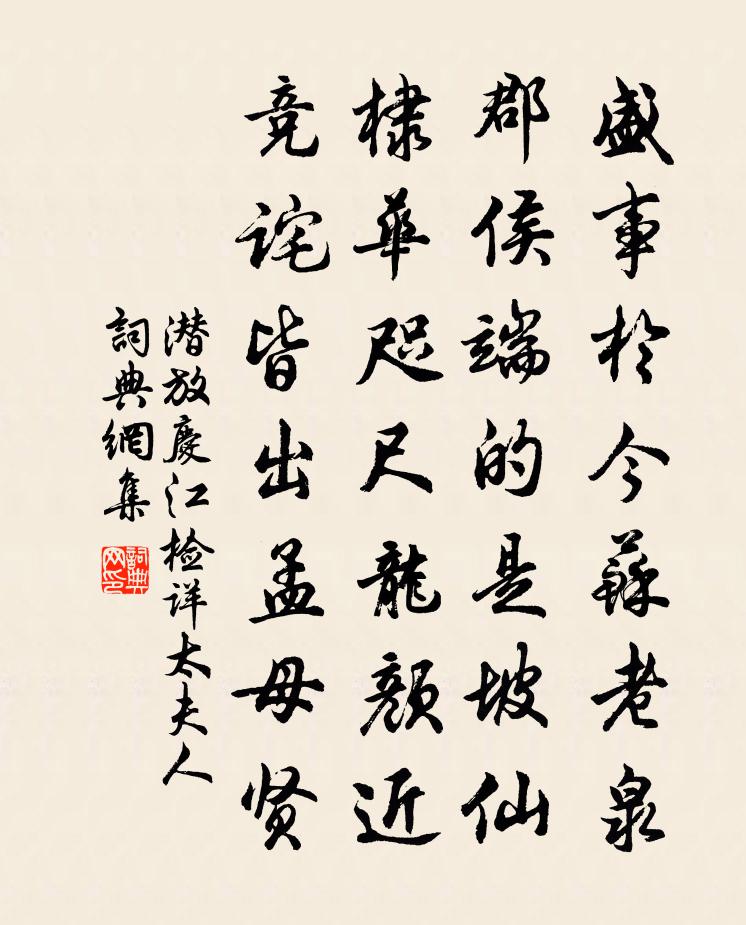 盛事於今蘇老泉
郡侯端的是坡仙
棣華咫尺龍顏近
竞诧皆出孟母贤
潜放慶江檢详太夫人
詞典網集
詞典网印